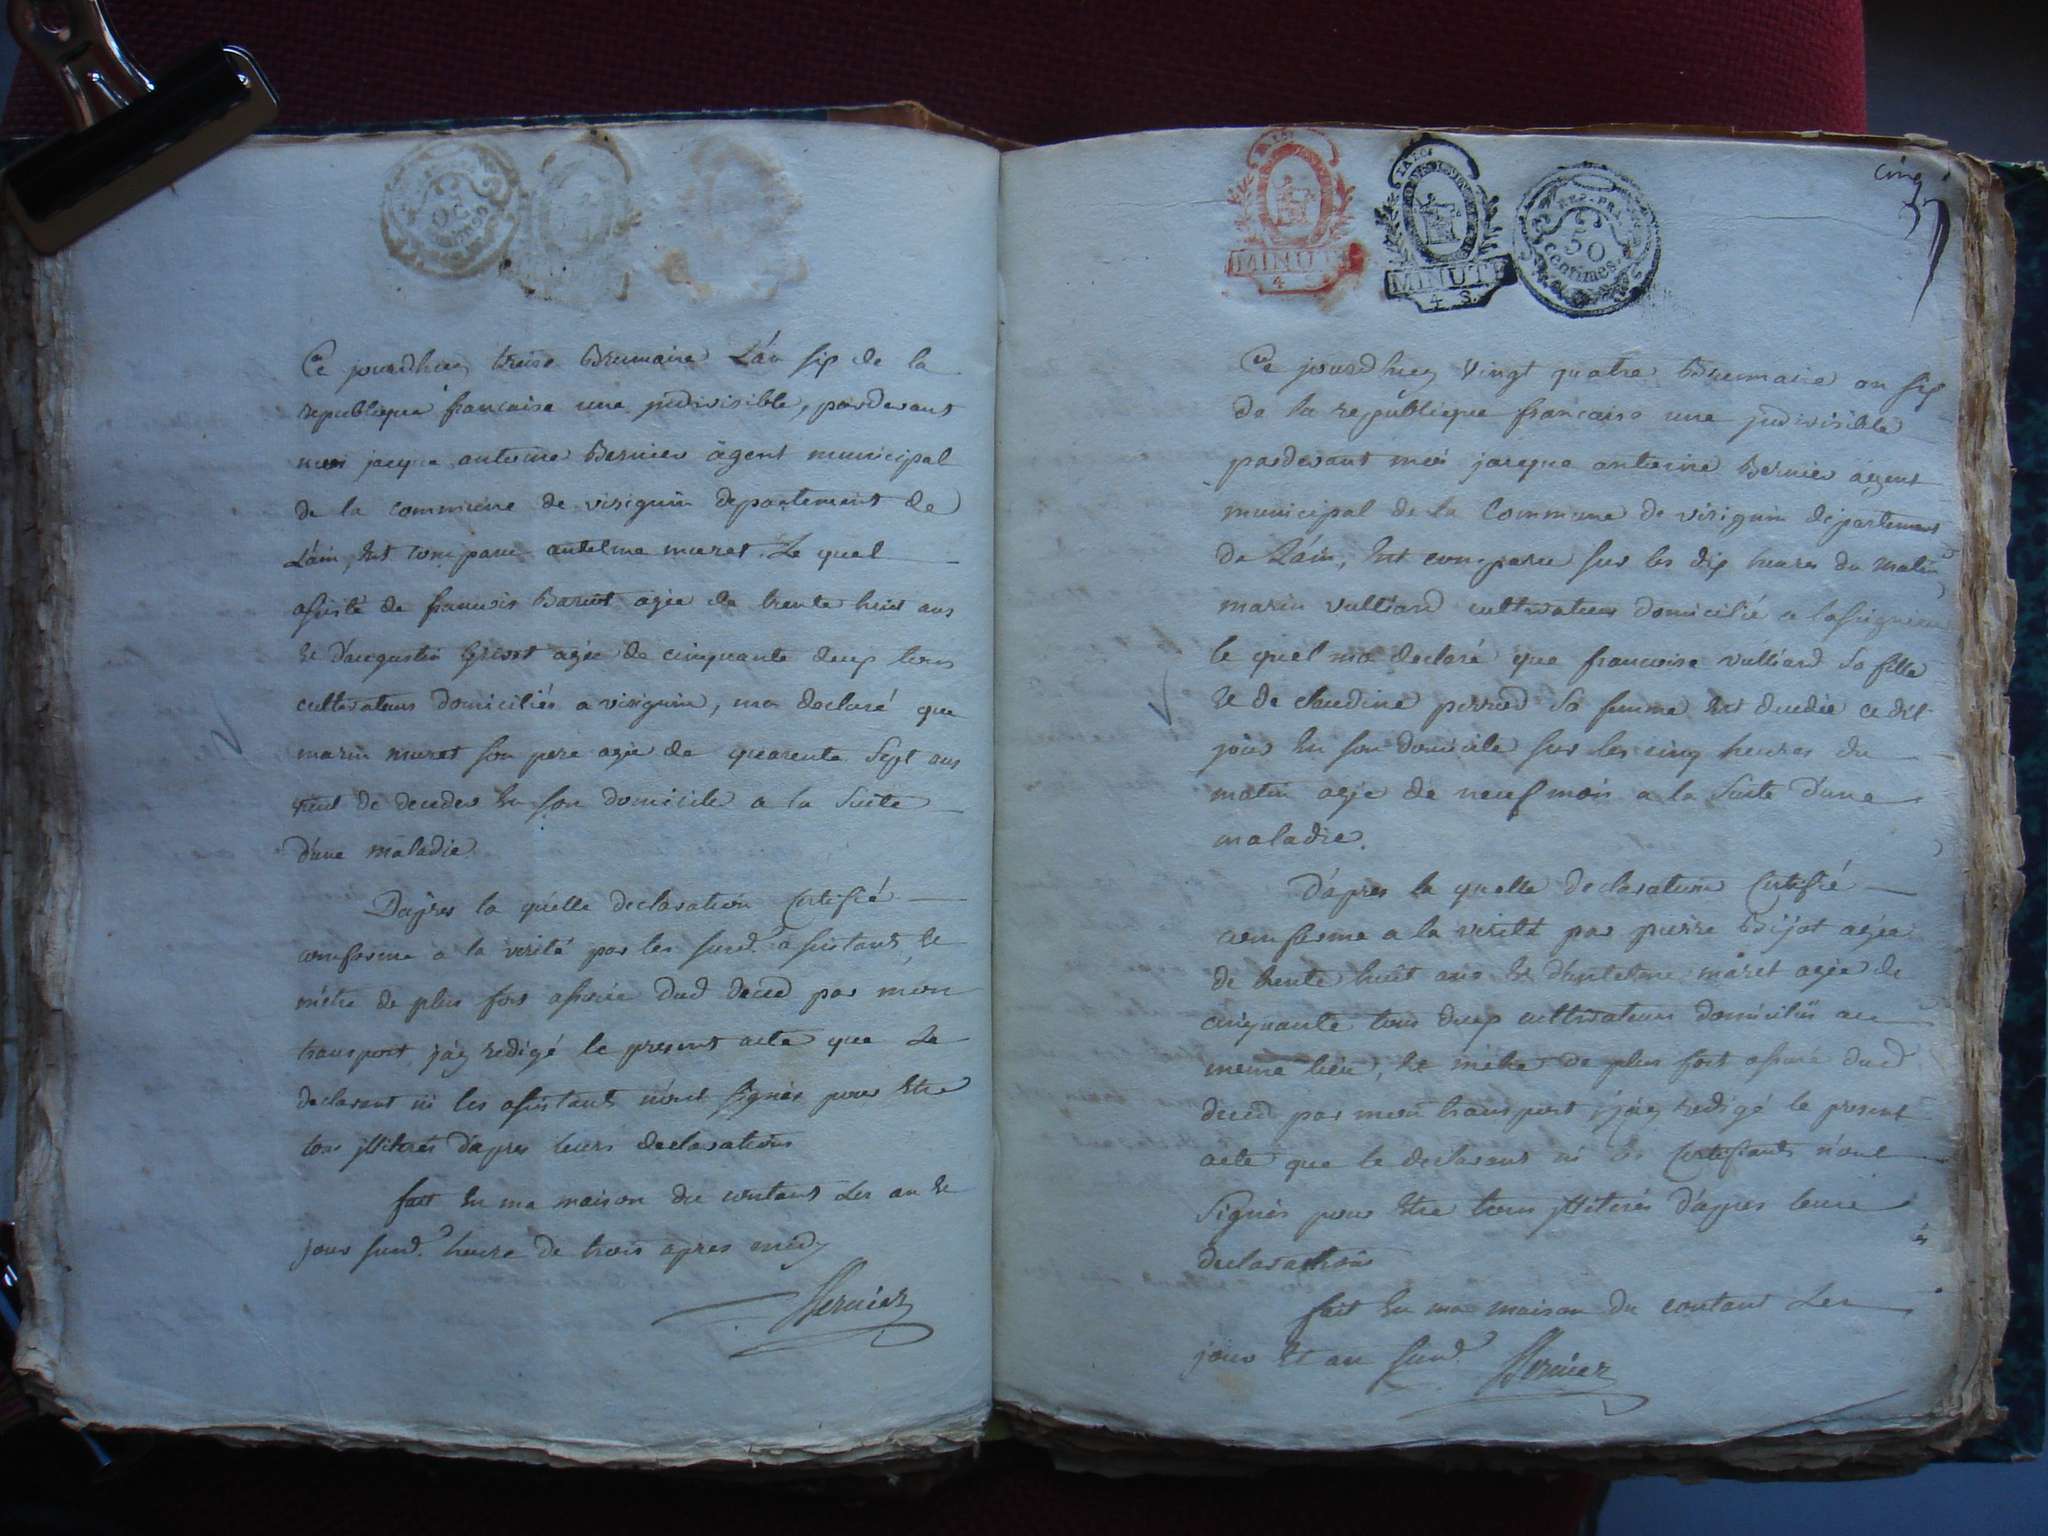 Ce jourdhuy treise Brumaire L'an six de la
republique francaise une jndivisible, pardevant
moi jacque antoine Bernier âgent municipal
de la commune de virignin departement de
L'ain, Est comparu antelme muret. Le quel
assisté de francois Baruot agée de trente huit ans
Et d'augustin Grivot agée de cinquante deux tous
cultivateurs domiciliés a virignin, ma declaré que
marin muret son pere agée de quarente Sept ans
vient de deceder En son domicile a la Suite
d'une maladie.
D'apres la quelle declaration Certifié
conforme a la verité par les Susd. assistants, Et
m'être de plus fort assurée Dud deced par mon
transport j'ay redigé le present acte que Le
declarant ni les assistants n'ont Signés pour Etre
tous jlliterés d'apres leurs declarations
fait En ma maison du contant Les an Et
jour Susd. heure de trois apres midy
Bernier
MINUTE
4
MINUTE
4 S.
REP. FRA.
50
Centimes
Cinq
Ce jourdhuy Vingt quatre Brumaire an six
de la republique francaise une jndivisible
pardevant moi jacque antoine Bernier agent
municipal de la Commune de virignin departement
de L'ain, Est comparu Sur les dix heures du matin
marin vulliard cultivateur domicilié a
le quel ma declaré que francoise vulliard Sa fille
Et de claudine perrod Sa femme Est decedée ce dit
jour En son domicile Sur les cinq heures du
matin agée de neuf mois a la Suite d'une
maladie.
D'apres la quelle declaration Certifié
conforme a la verité par pierre Bijot agée
de trente huit ans Et d'antelme muret agée de
cinquante tous deux cultivateurs domiciliés au
meme lieu, Et m'etre de plus fort assuré dud
deced par mon transport, j'ay redigé le present
acte que le declarant ni les Certifiants n'ont
Signés pour Etre tous jlliterés d'apres leurs
declarations
fait En ma maison du contant Les
jour Et an Susd. Bernier